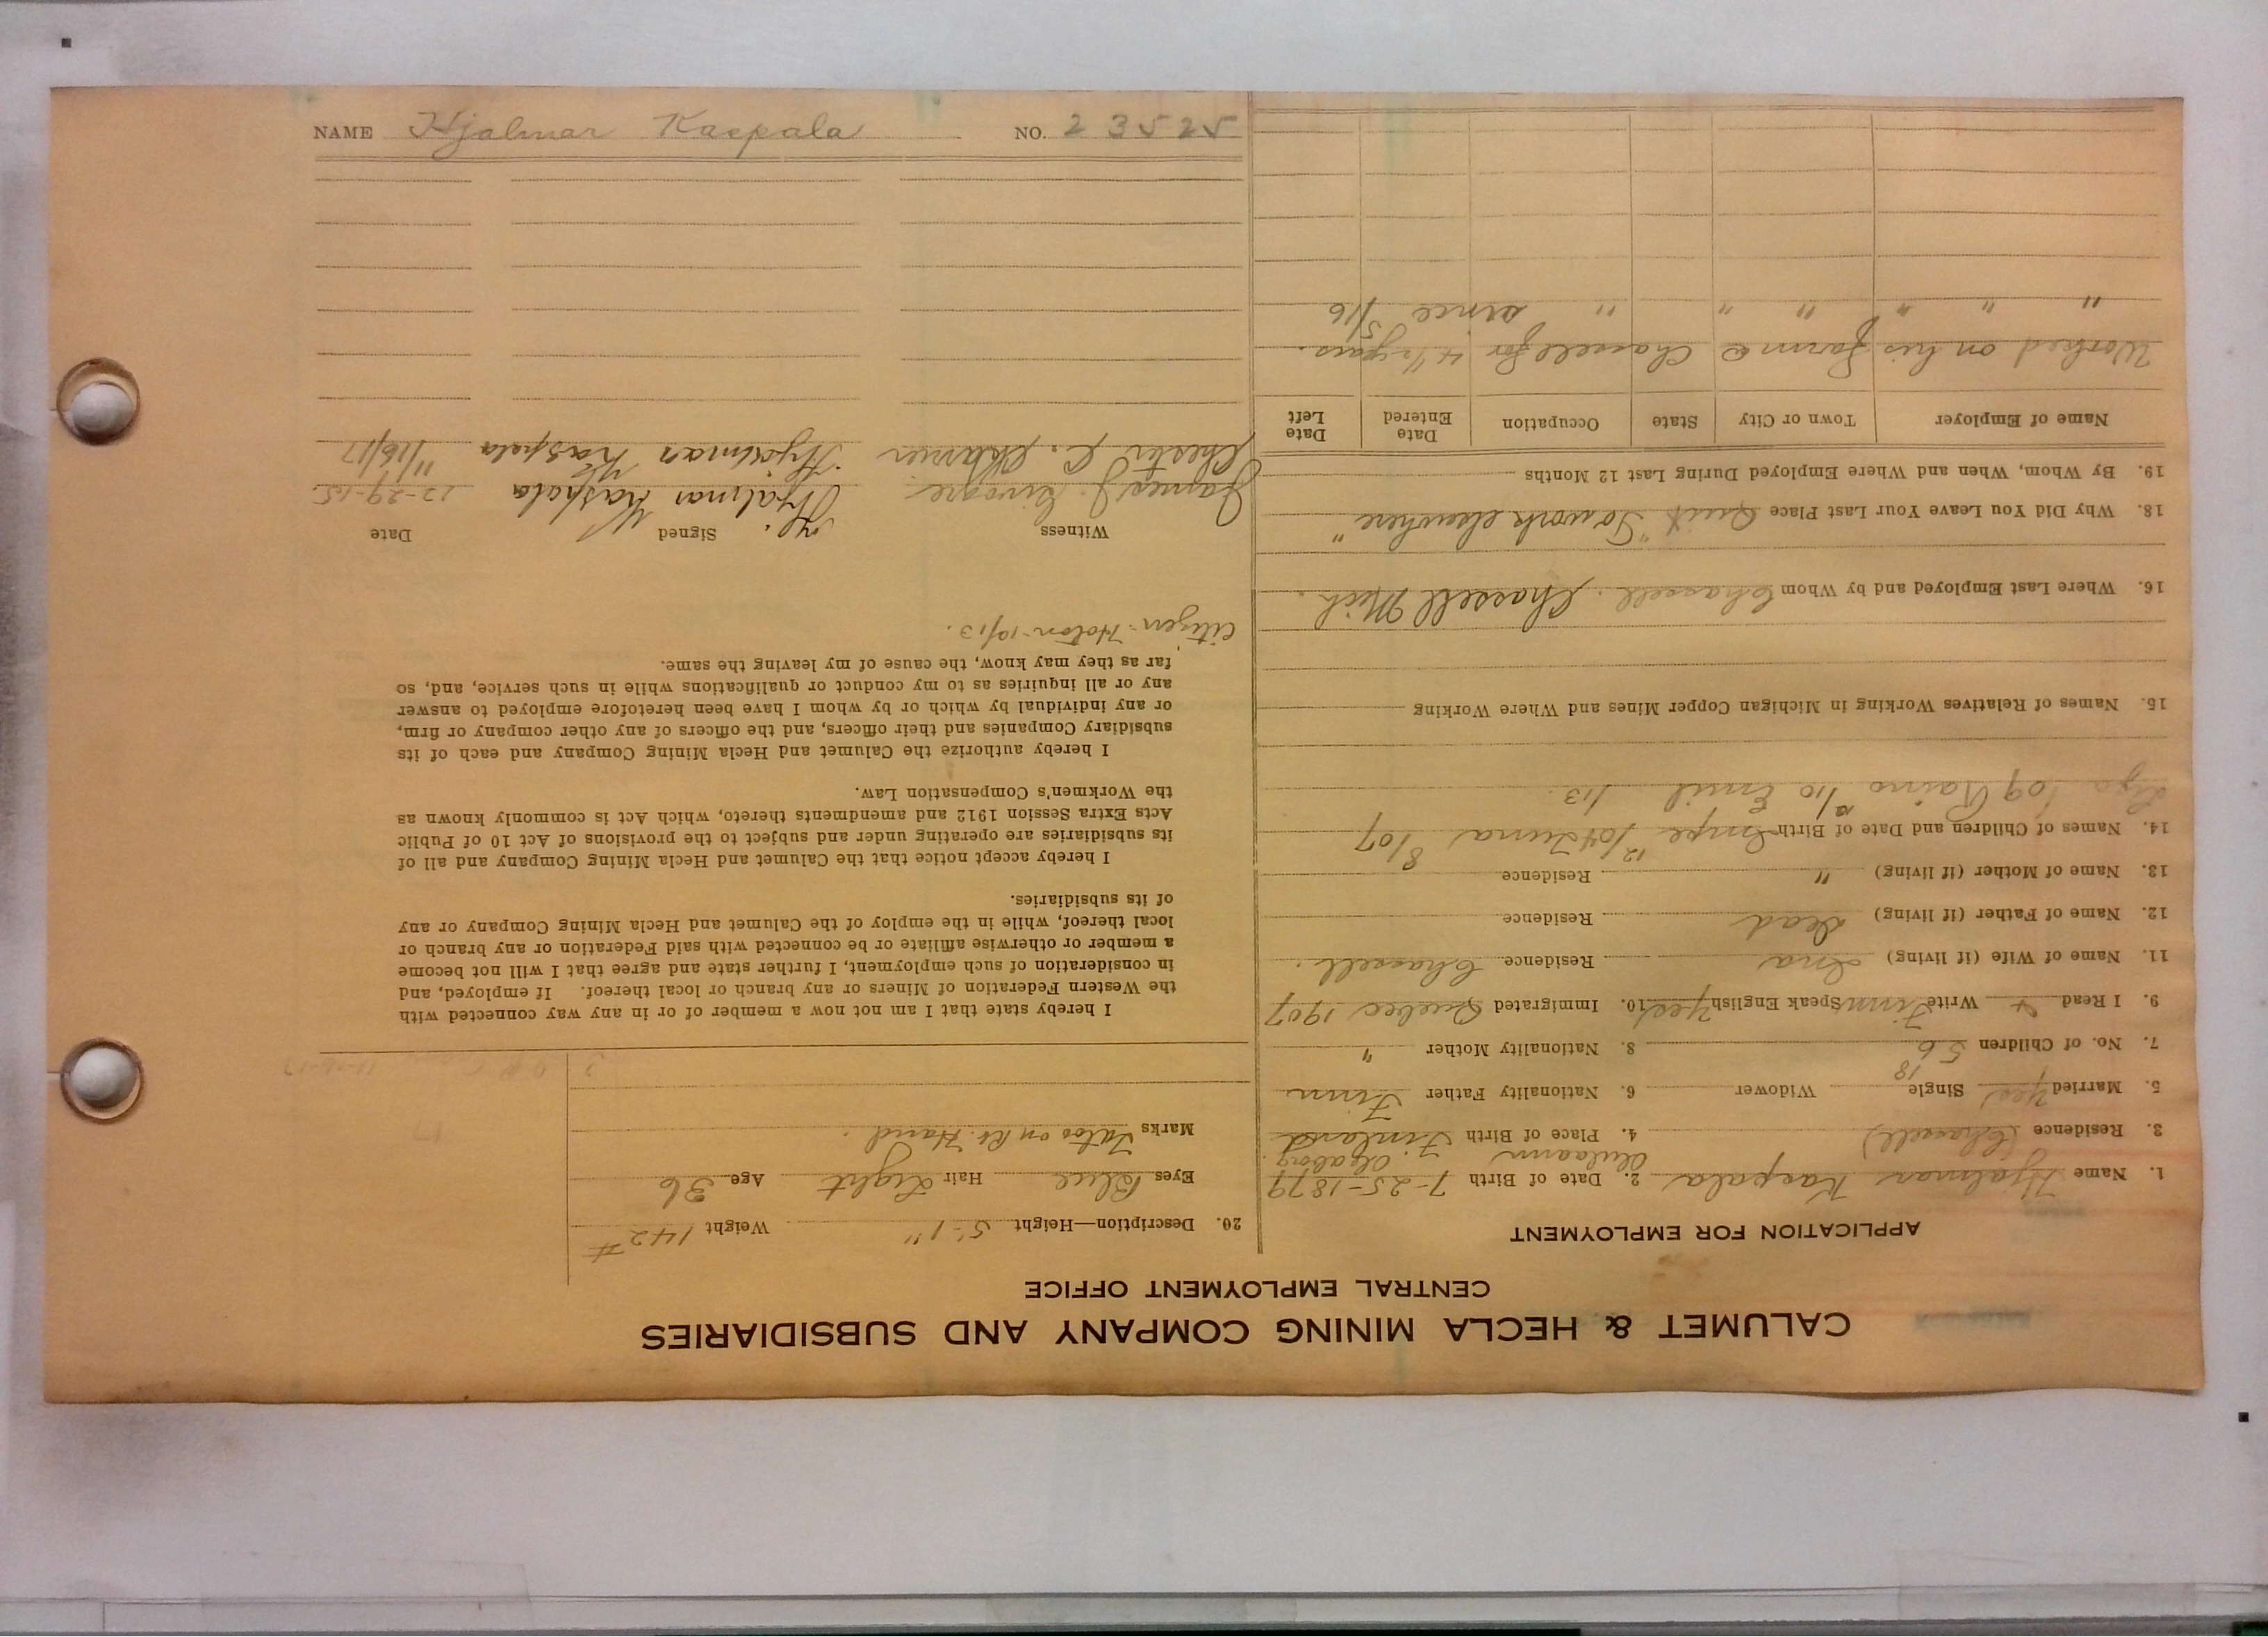 CALUMET & HECLA MINING COMPANY AND SUBSIDIARIES
CENTRAL EMPLOYMENT OFFICE
APPLICATION FOR EMPLOYMENT
1. Name Hjalmar Kaspala 2. Date of Birth 7-25-1879
3. Residence (Chassell) 4. Place of Birth Finland
5. Married Yes Single 18 Widower 6. Nationality Father Finn
7. No. of Children 5 6 8. Nationality Mother "
9. I Read + Write Finn Speak English Yes 10. Immigrated Quebec 1907
11. Name of Wife (if living) Ina Residence Chassell.
12. Name of Father (if living) Dead Residence
13. Name of Mother (if living) " Residence
14. Names of Children and Date of Birth 12/04 8/07
/09 Raino /10 Emil 1/13
15. Names of Relatives Working in Michigan Copper Mines and Where Working
16. Where Last Employed and by Whom Chassell. Chassell Mich.
18. Why Did You Leave Your Last Place Quit "To work elsewhere"
19. By Whom, When and Where Employed During Last 12 Months
Name of Employer Town or City State Occupation Date Entered Date Left
Worked on his farm @ Chassell for 4 1/2 years.
" " " " " " since 5/16
20. Description—Height 5'-1" Weight 142 #
Eyes Blue Hair Light Age 36
Marks Tatoo on Rt. Hand.
I hereby state that I am not now a member of or in any way connected with
the Western Federation of Miners or any branch or local thereof. If employed, and
in consideration of such employment, I further state and agree that I will not become
a member or otherwise affiliate or be connected with said Federation or any branch or
local thereof, while in the employ of the Calumet and Hecla Mining Company or any
of its subsidiaries.
I hereby accept notice that the Calumet and Hecla Mining Company and all of
its subsidiaries are operating under and subject to the provisions of Act 10 of Public
Acts Extra Session 1912 and amendments thereto, which Act is commonly known as
the Workmen's Compensation Law.
I hereby authorize the Calumet and Hecla Mining Company and each of its
subsidiary Companies and their officers, and the officers of any other company or firm,
or any individual by which or by whom I have been heretofore employed to answer
any or all inquiries as to my conduct or qualifications while in such service, and, so
far as they may know, the cause of my leaving the same.
Citizen-Hoton-10/13.
Witness Signed Date
James J. Hjalmar Kaspala 12-29-15
Chester C. Hjalmar Kaspala 11/16/17
NAME Hjalmar Kaspala NO. 23525